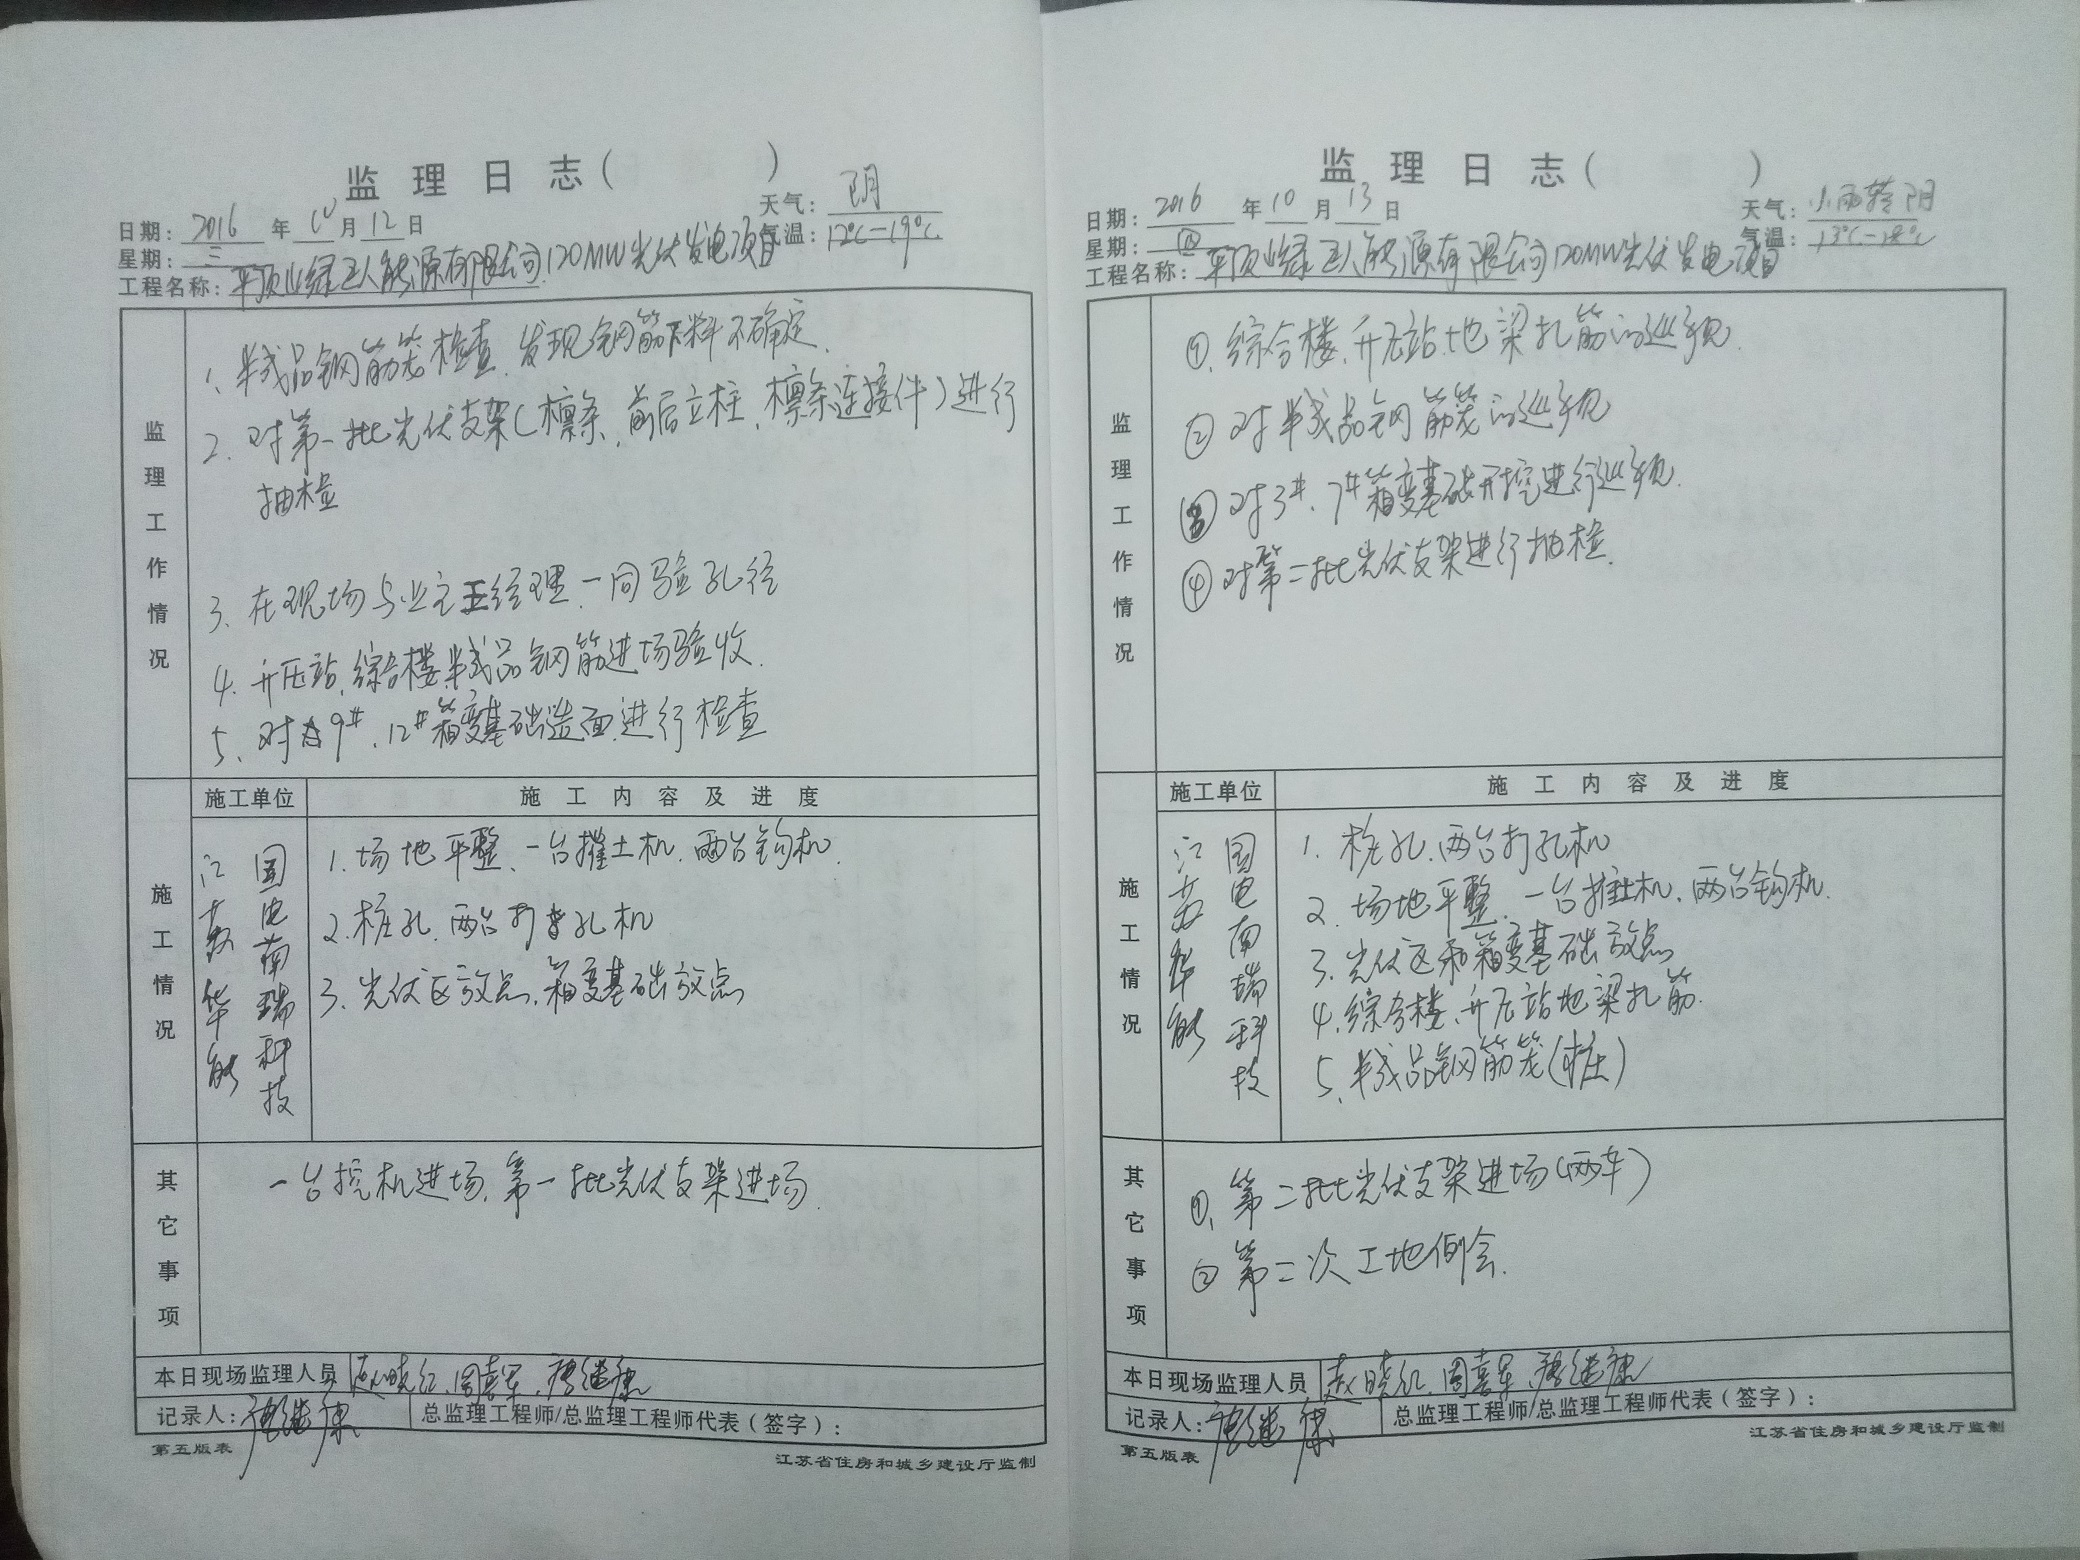 监理日志（ ）
日期：2016年10月12日 天气：阴
星期：三 气温：12℃-19℃
工程名称：平顶山绿卫人能源有限公司120MW光伏发电项目
监理工作情况
1、半成品钢筋笼检查、发现钢筋下料不确定.
2、对第一批光伏支架（檩条、前后立柱、檩条连接件）进行
抽检
3、在现场与业主王经理一同验孔径
4、升压站、综合楼半成品钢筋进场验收.
5、对9#、12#箱变基础笼面进行检查
施工情况
施工单位 施工内容及进度
江苏华能
国电南瑞科技
1.场地平整、一台摧土机、两台钩机.
2.桩孔、两台打孔机
3、光伏区放点、箱变基础放点
其它事项
一台挖机进场、第一批光伏支架进场.
本日现场监理人员 赵晓红、周喜军、唐继康
记录人：唐继康 总监理工程师/总监理工程师代表（签字）：
第五版表 江苏省住房和城乡建设厅监制
监理日志（ ）
日期：2016年10月13日 天气：小雨转阴
星期：四 气温：13℃-18℃
工程名称：平顶山绿卫人能源有限公司120MW光伏发电项目
监理工作情况
①、综合楼、升压站地梁扎筋的巡视.
② 对半成品钢筋笼的巡视
③ 对3#、7#箱变基础开挖进行巡视.
④ 对第二批光伏支架进行抽检.
施工情况
施工单位 施工内容及进度
江苏华能
国电南瑞科技
1.桩孔、两台打孔机
2.场地平整、一台推土机、两台钩机.
3、光伏区和箱变基础放点
4、综合楼、升压站地梁扎筋.
5、半成品钢筋笼（桩）
其它事项
①、第二批光伏支架进场（两车）
② 第二次工地例会.
本日现场监理人员 赵晓红、周喜军、唐继康
记录人：唐继康 总监理工程师/总监理工程师代表（签字）：
第五版表 江苏省住房和城乡建设厅监制